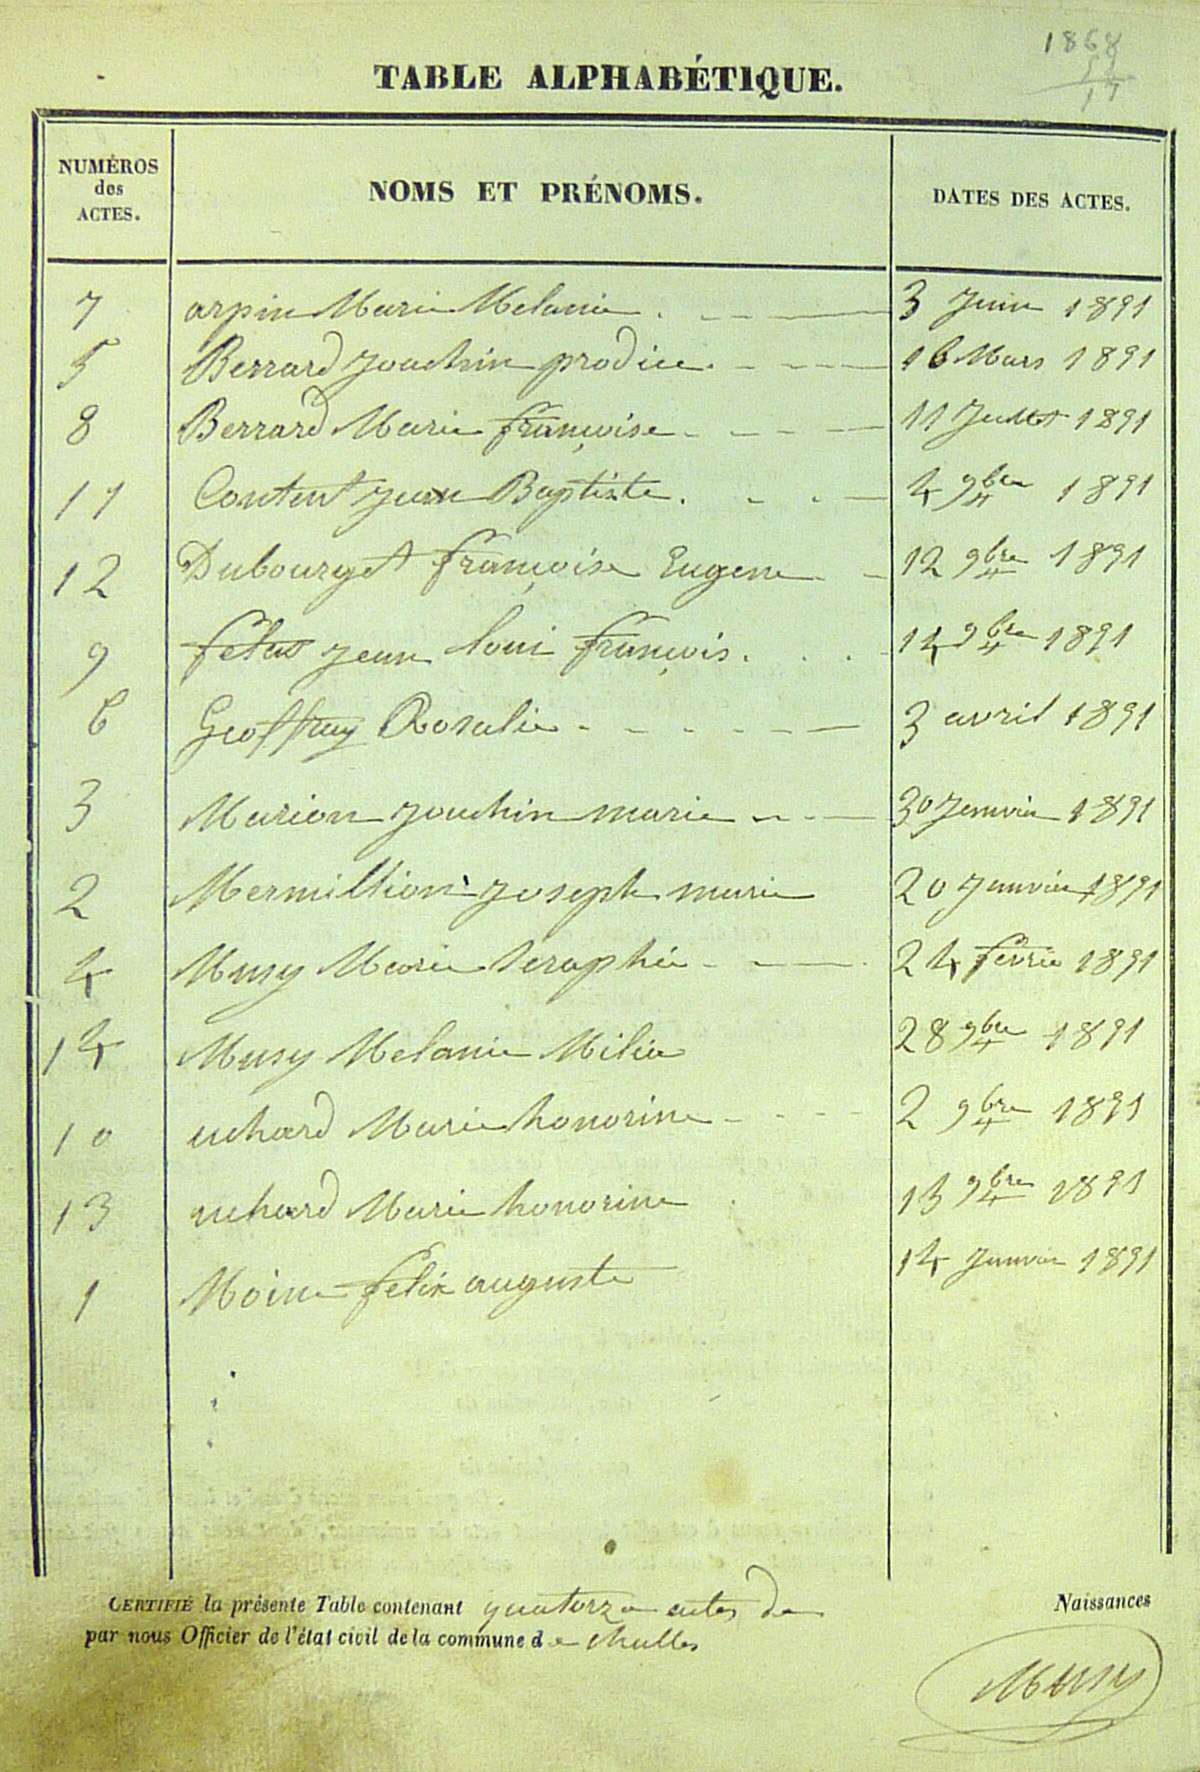 1868
17
TABLE ALPHABÉTIQUE.
NUMÉROS des ACTES. NOMS ET PRÉNOMS. DATES DES ACTES.
7 arpin Marie Melanie 3 Juin 1891
5 Berrard Joachin prodice 16 Mars 1891
8 Berrard Marie françoise 11 Juillet 1891
11 Content Jean Baptiste 4 9bre 1891
12 Dubourget françoise Eugene 12 9bre 1891
9 fetas Jean loui françois 14 9bre 1891
6 Geoffray Rosalie 3 avril 1891
3 Marion Joachin marie 30 Janvier 1891
2 Mermillion Joseph marie 20 Janvier 1891
4 Musy Marie Seraphie 24 fevrie 1891
14 Musy Melanie Milie 28 9bre 1891
10 uchard Marie honorine 2 9bre 1891
13 uchard Marie honorine 13 9bre 1891
1 Moine felix auguste 14 Janvier 1891
CERTIFIÉ la présente Table contenant quatorze actes de Naissances
par nous Officier de l'état civil de la commune de challes
Musy